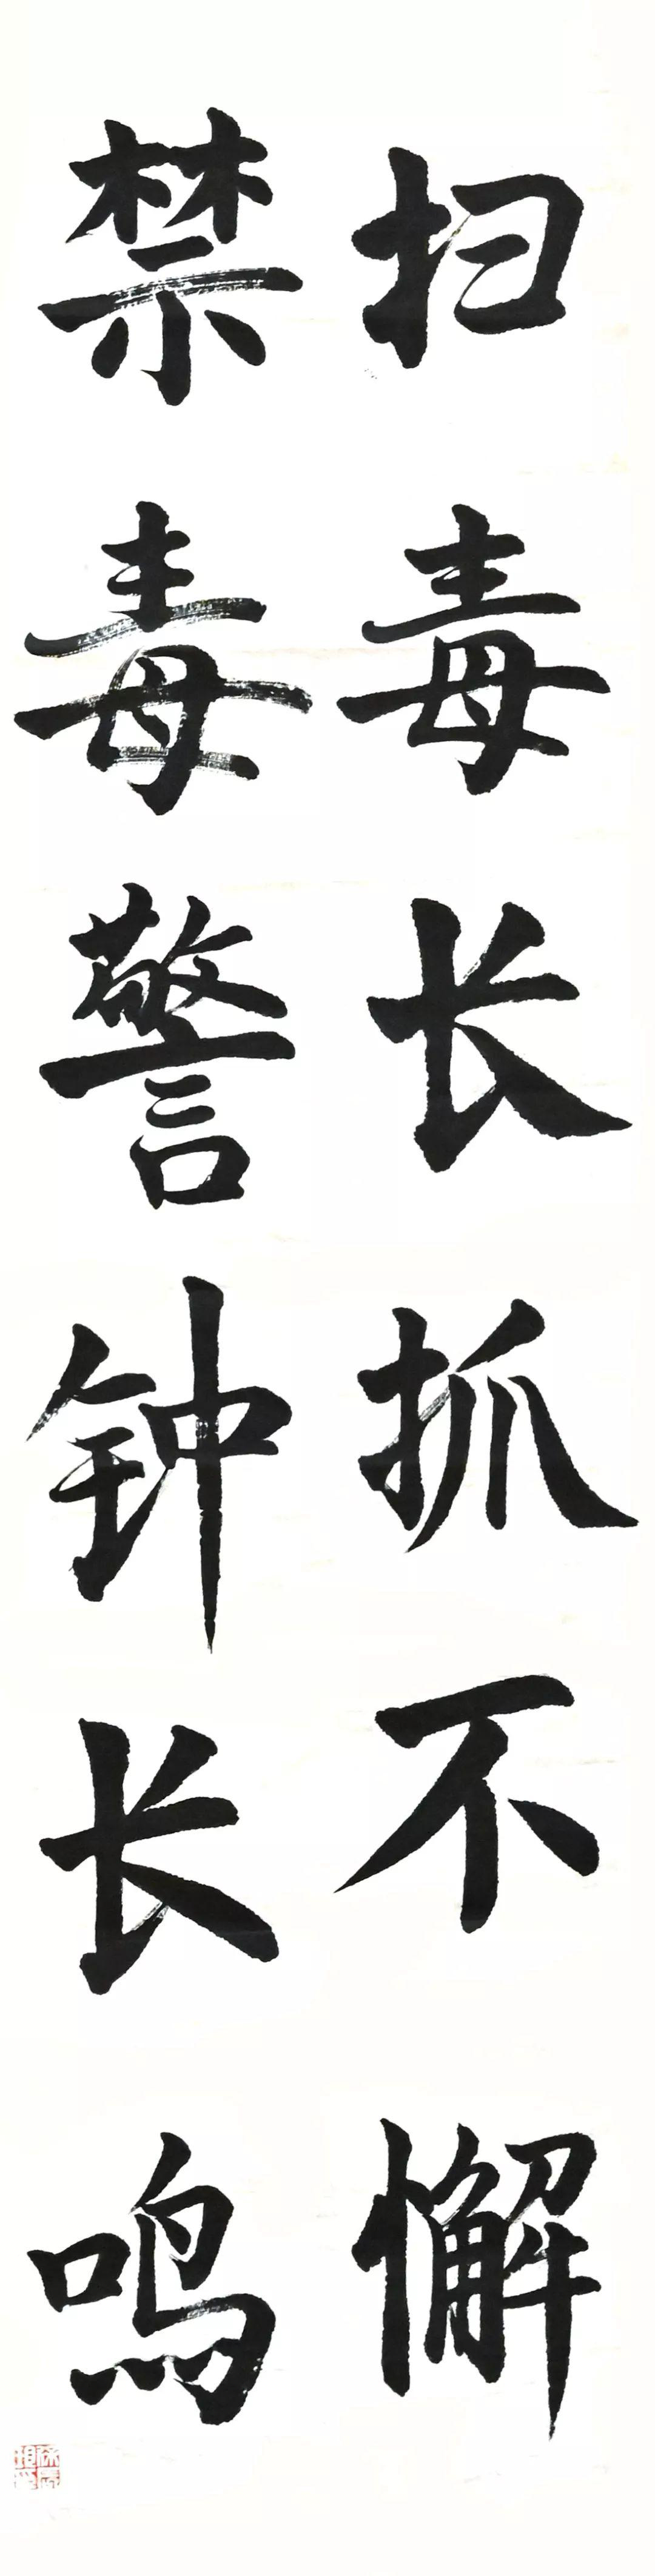 扫毒长抓不懈
禁毒警钟长鸣